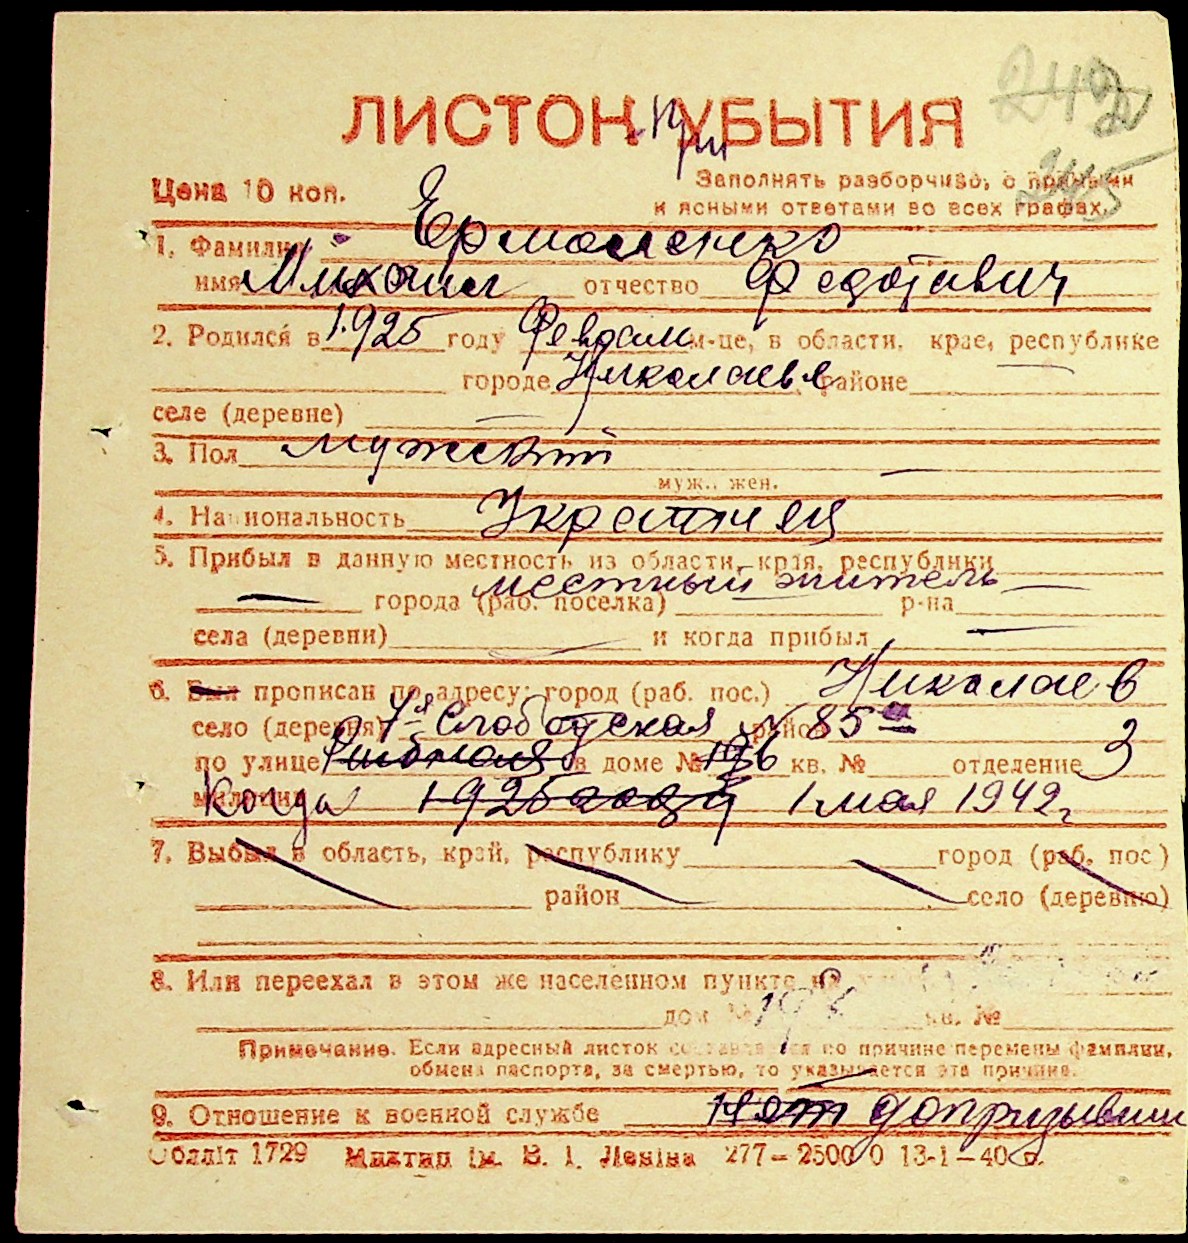 242
ЛИСТОК УБЫТИЯ
При
245
Цена 10 коп.
Заполнять разборчиво, с прямыми
и ясными ответами во всех графах.
1. Фамилия Ермоленко
имя Михаил отчество Федотович
2. Родился в 1925 году Феврали м-це, в области, крае, республике —
городе Николаеве районе
селе (деревне) —
3. Пол мужской —
муж., жен.
4. Национальность Украинец
5. Прибыл в данную местность из области, края, республики
местный житель —
— города (раб. поселка) р-на
села (деревни) — и когда прибыл —
6. Был прописан по адресу: город (раб. пос.) Николаев
село (деревня) 7-я Слободская район 85а
по улице в доме № 196 кв. № отделение 3
милиции Когда 1925 года 1 мая 1942 г
7. Выбыл в область, край, республику город (раб. пос.)
район село (деревню)
8. Или переехал в этом же населенном пункте на
дом № кв. №
Примечание. Если адресный листок составляется по причине перемены фамилии,
обмена паспорта, за смертью, то указывается эта причина.
9. Отношение к военной службе Нет допризывник
Обллiт 1729 Миктип iм. В. I. Ленiна 277—25000 13-I—40 р.